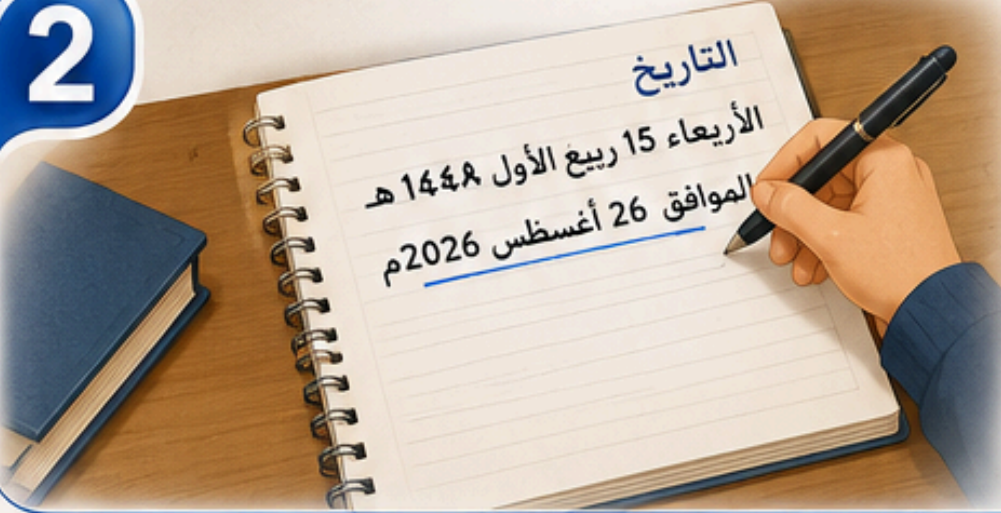 2
التاريخ
الأربعاء 15 ربيع الأول 1448 هـ
الموافق 26 أغسطس 2026م